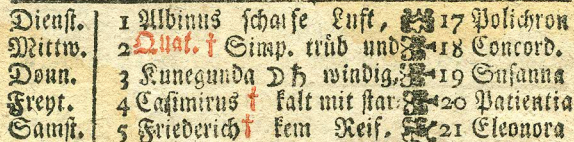 Dienst. 1 Albinus scharfe Luft, 17 Polichron
Mittw. 2 Quat. † Simp. trüb und 18 Concord.
Donn. 3 Kunegunda ☽ ♄ windig, 19 Susanna
Freyt. 4 Casimirus † kalt mit star- 20 Patientia
Samst. 5 Friederich † kem Reif. 21 Eleonora